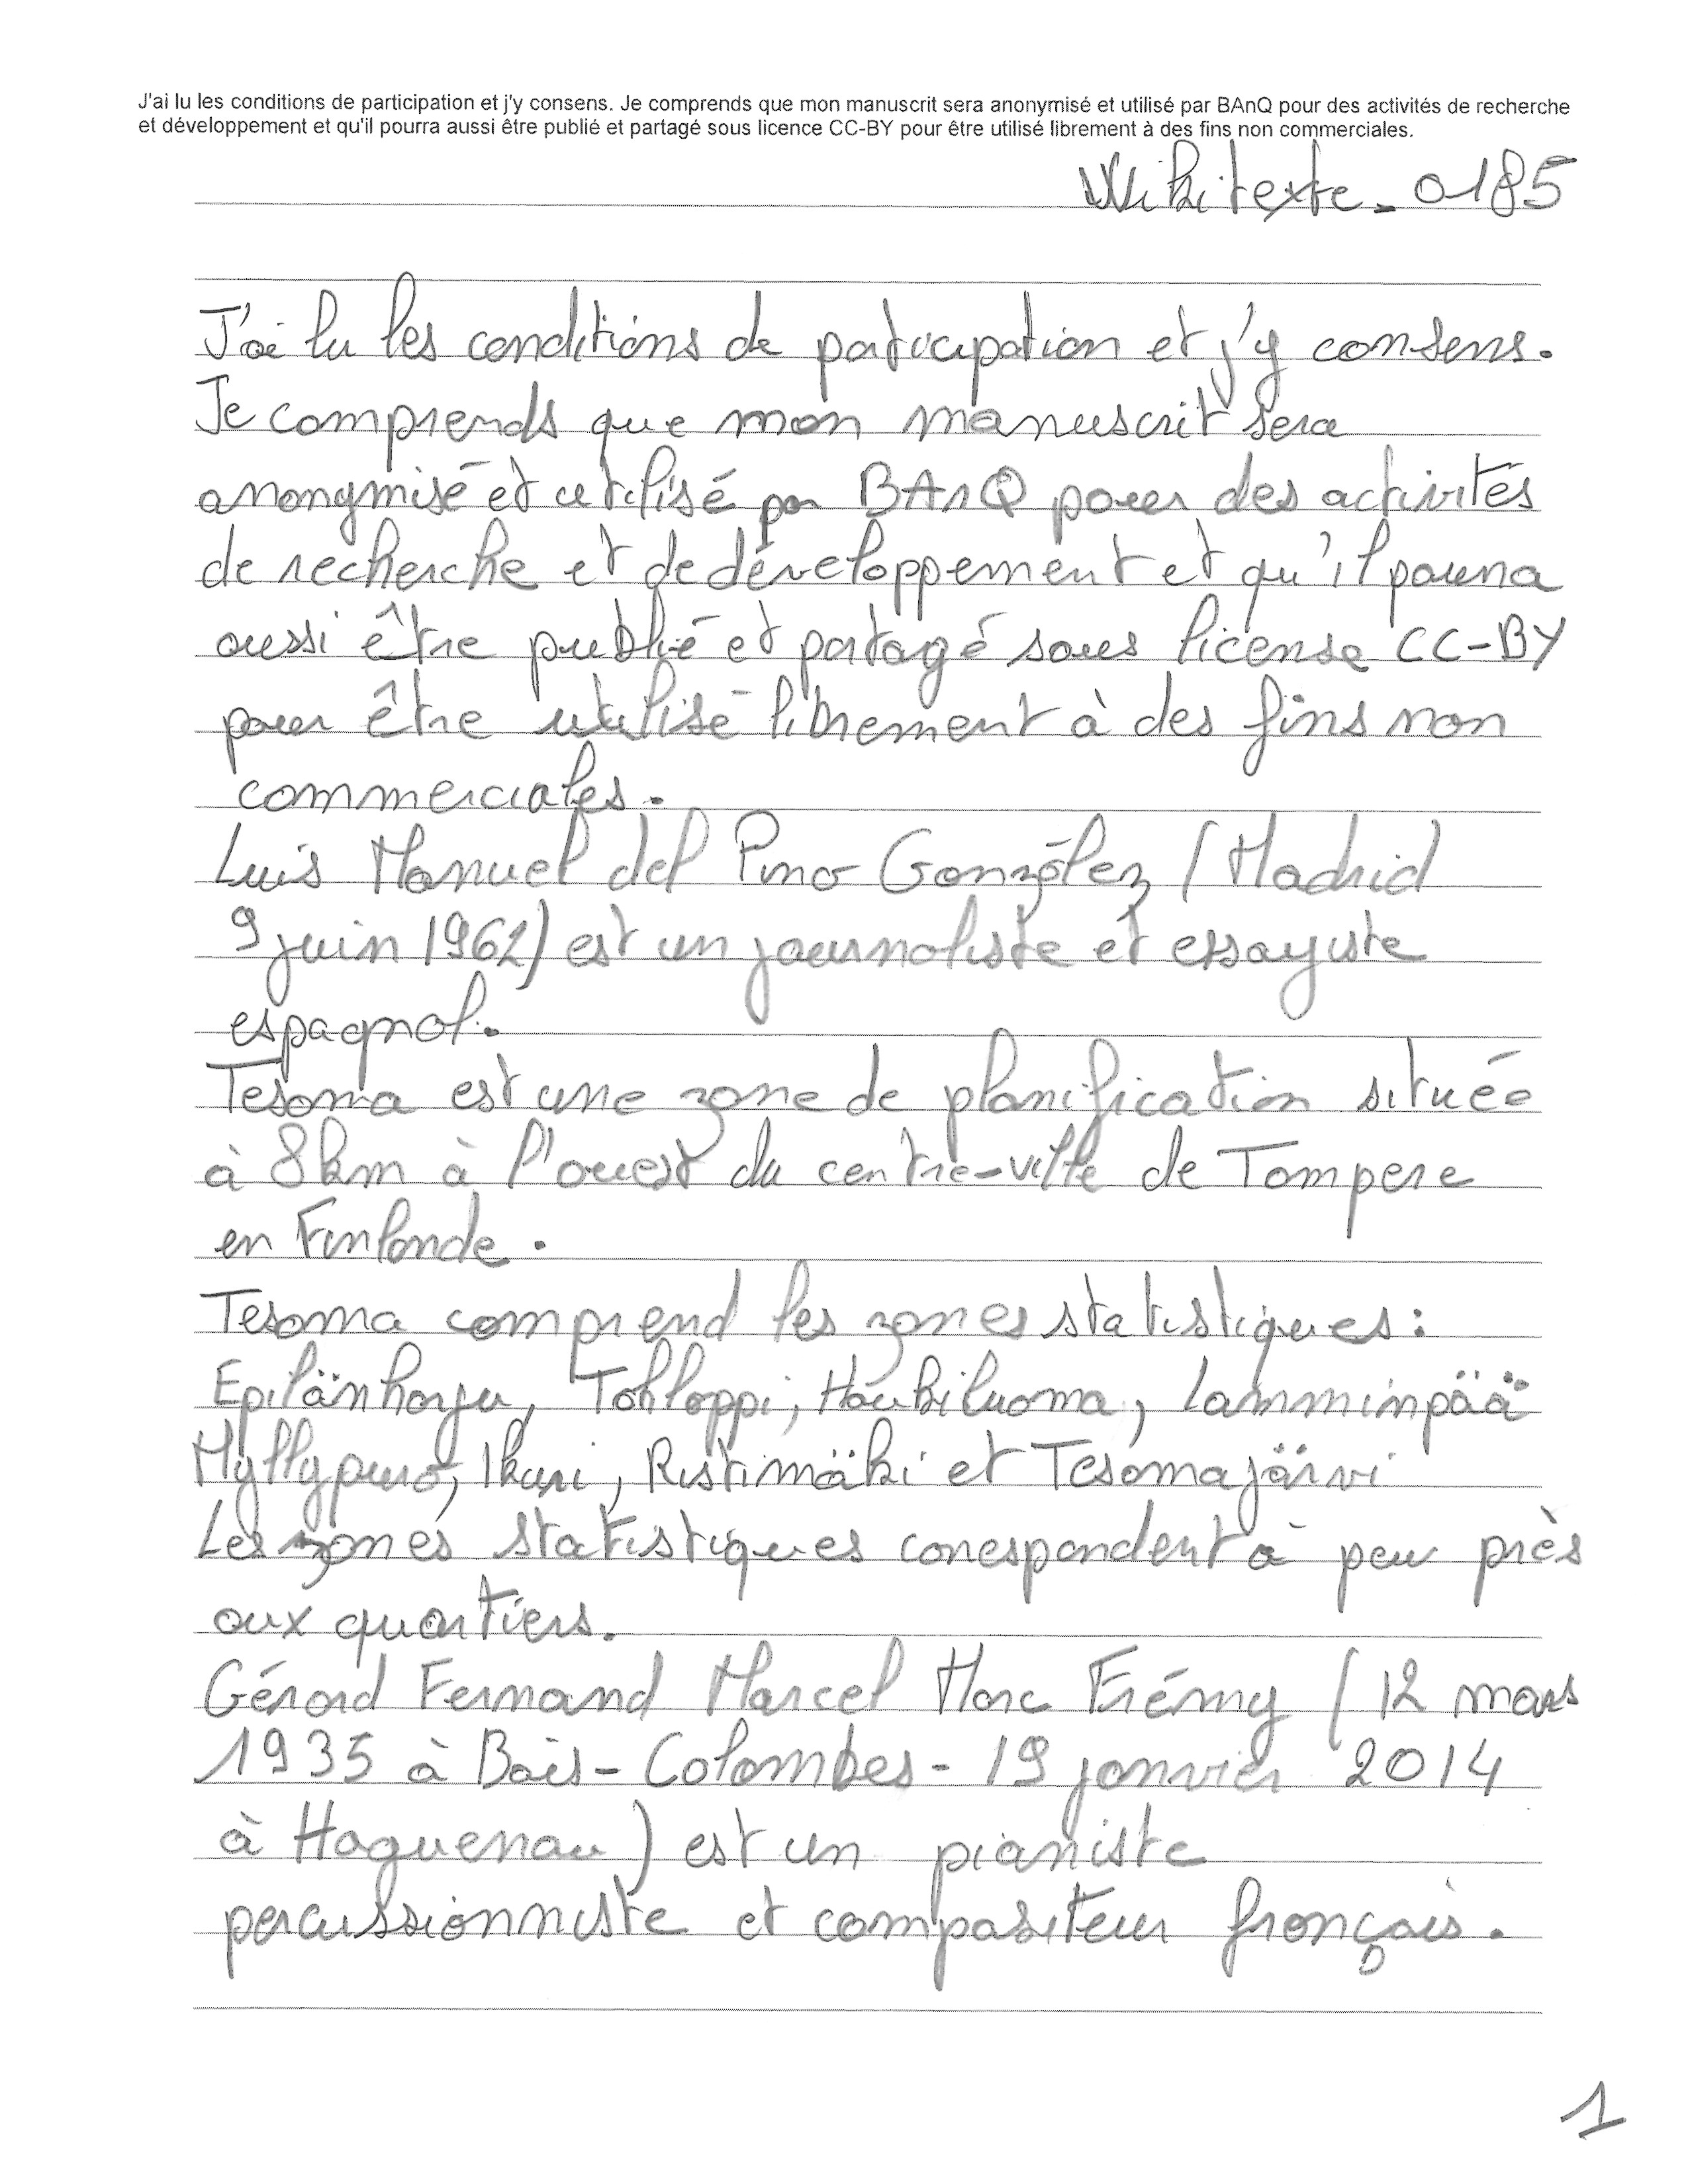 J'ai lu les conditions de participation et j'y consens. Je comprends que mon manuscrit sera anonymisé et utilisé par BAnQ pour des activités de recherche
et développement et qu'il pourra aussi être publié et partagé sous licence CC-BY pour être utilisé librement à des fins non commerciales.
Wikitexte_0185
J'ai lu les conditions de participation et j'y consens.
Je comprends que mon manuscrit sera
anonymisé et utilisé par BAnQ pour des activités
de recherche et de développement et qu'il pourra
aussi être publié et partagé sous license CC-BY
pour être utilisé librement à des fins non
commerciales.
Luis Manuel del Pino González (Madrid
9 juin 1962) est un journaliste et essayiste
espagnol.
Tesoma est une zone de planification située
à 8km à l'ouest du centre-ville de Tampere
en Finlande.
Tesoma comprend les zones statistiques:
Epilänharju, Tohloppi, Haukiluoma, Lamminpää
Myllypuro, Ikuri, Ristimäki et Tesomajärvi
Les zones statistiques correspondent à peu près
aux quartiers.
Gérard Fernand Marcel Marc Frémy (12 mars
1935 à Bois-Colombes - 19 janvier 2014
à Haguenau) est un pianiste
percussionniste et compositeur français.
1